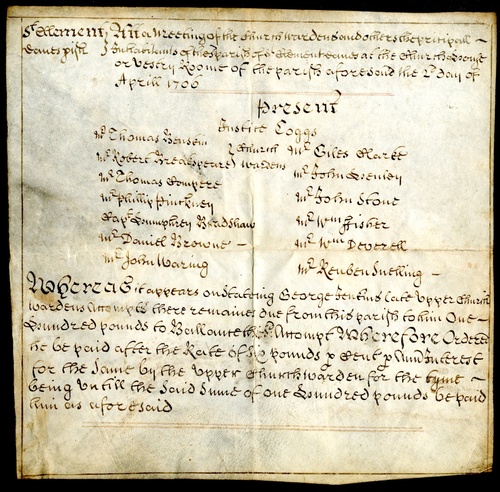 St Clement Att a Meeting of the Church wardens and others the principall
Danes pish Inhabitants of the parish of St Clement danes at the Church House
or vestry Roome of the parish aforesaid the 2d day of
Aprill 1700
Present
Justice Coggs
Mr Thomas Church Mr Giles Clarke
Mr Robert Breakspeare wardens Mr John
Mr Thomas Mr John Stone
Mr Phillip Pinckney Mr Wm Fisher
Capt Humphrey Bradshaw Mr Wm Deverell
Mr Daniel Browne Mr Reuben Snelling
Mr John Waring
Whereas it appears on Stateing George Jenkins late upper Church
wardens Accompts there remaines due from this parish to him One
Hundred pounds to Ballance the Accompt Wherefore Ordered
he be paid after the Rate of Six pounds p Cent p Ann Interest
for the same by the upper Churchwarden for the tyme
being untill the said Sume of one Hundred pounds be paid
him as aforesaid